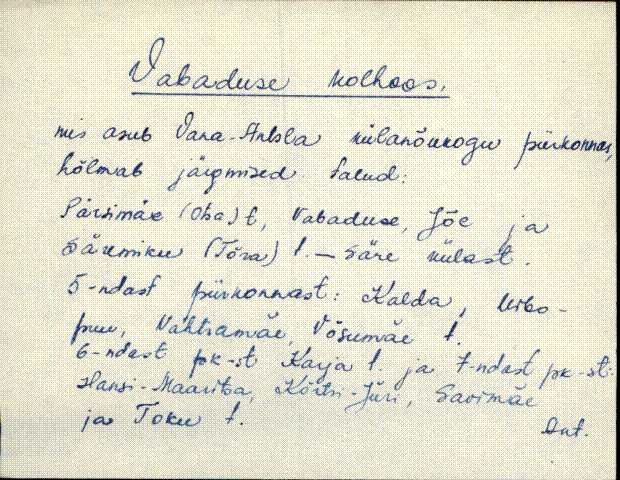 Vabaduse kolhoos.
mis asub Vana-Antsla külanõukogu piirkonnas,
hõlmab järgmised talud:
Pärsimäe (Oba) t, Vabaduse, Jõe ja
Säremiku (Tõra) t. — Säre külast.
5-ndast piirkonnast: Kalda, Uibo-
puu, Vahtramäe, Võsumäe t.
6-ndast pk-st Karja t. ja 7-ndast pk-st:
Hansi-Maaritsa, Körtsi-Jüri, Savimäe
ja Toku t.
Ant.